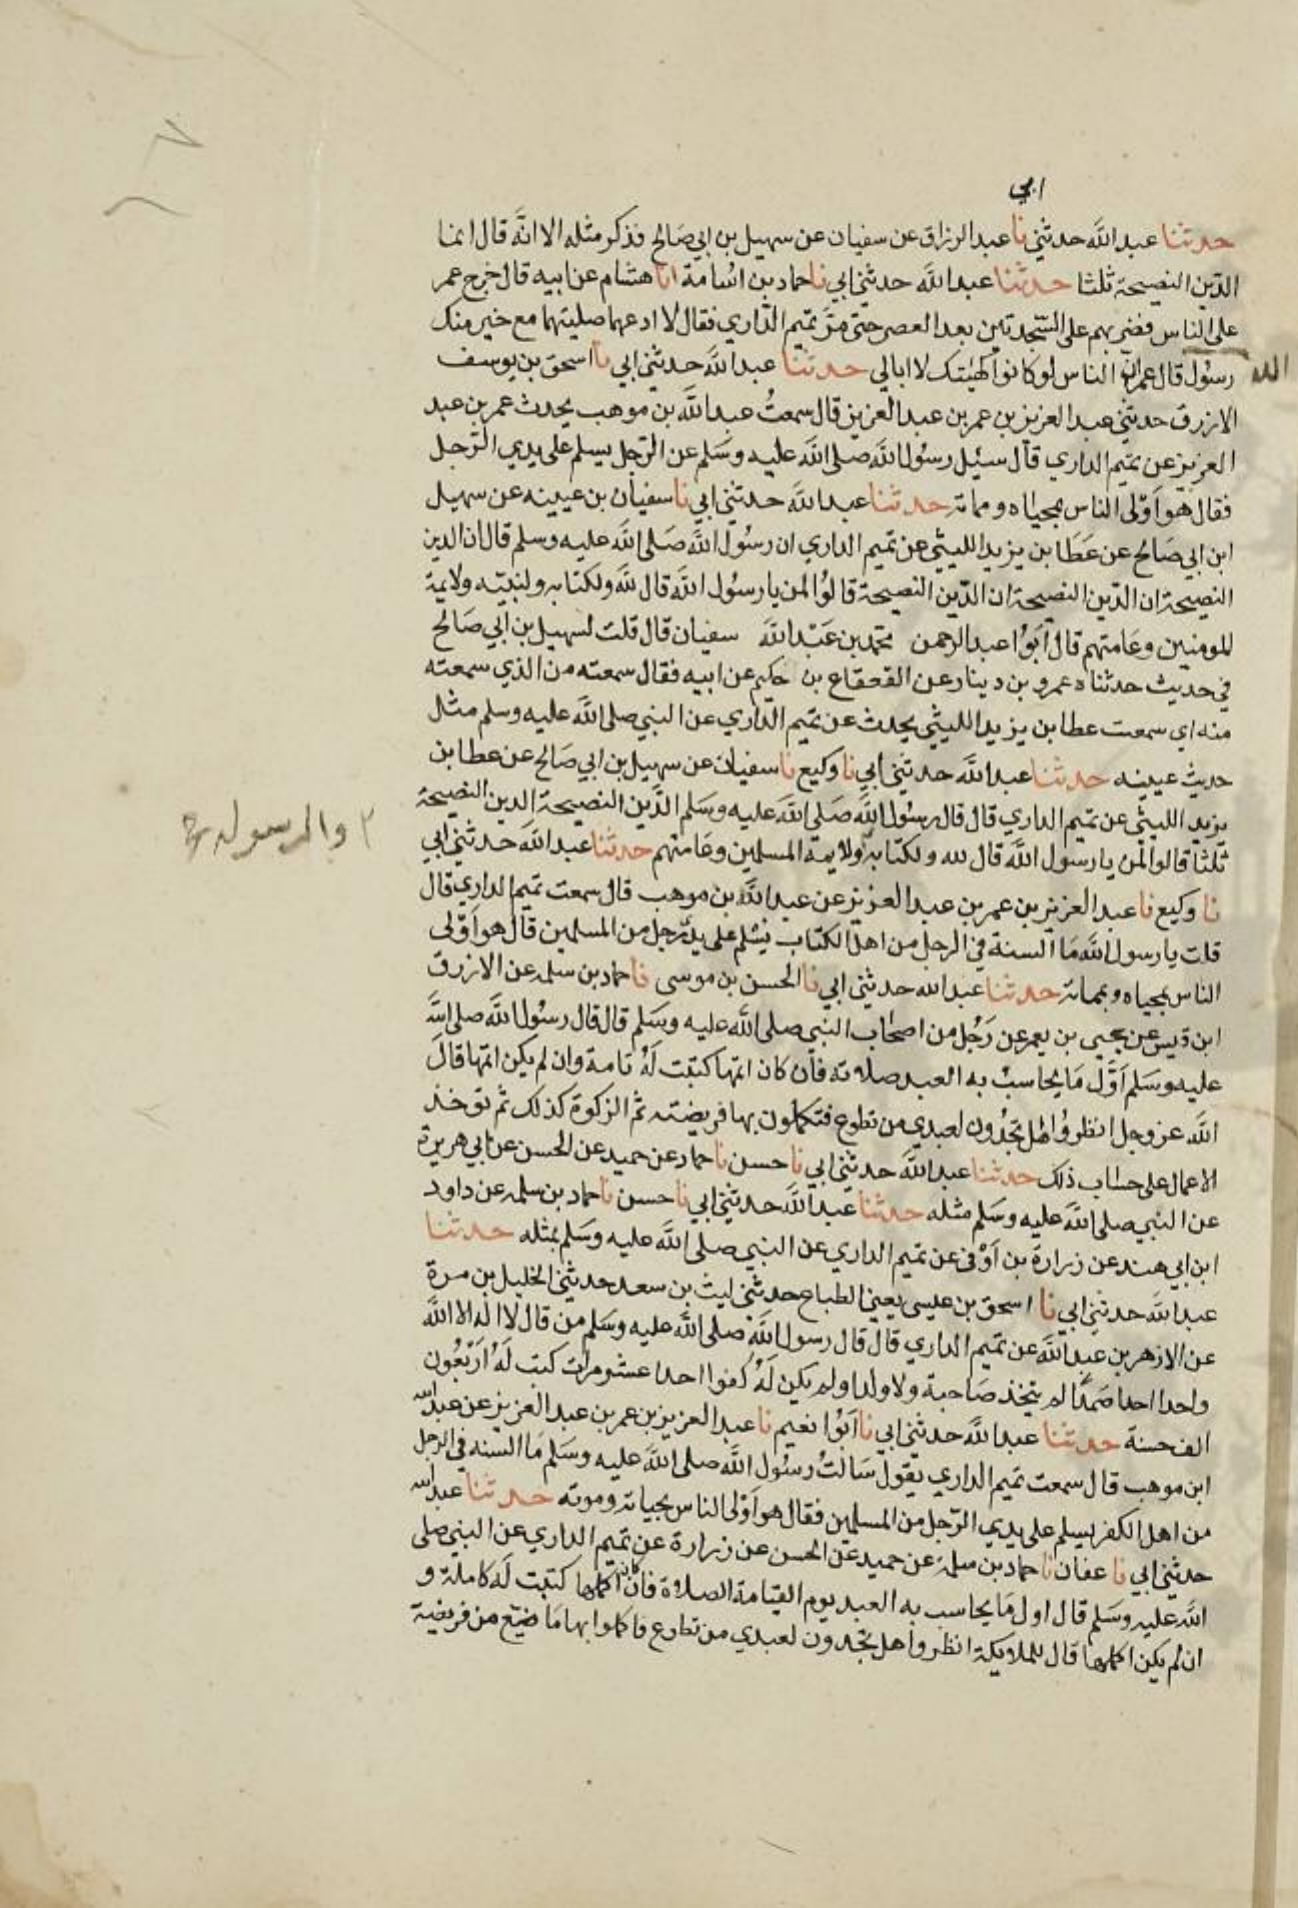 ابي
حدثنا عبد الله حدثني نا عبد الرزاق عن سفيان عن سهيل بن ابي صَالح فذكر مثله الا انَّه قال انما
الدّين النصيحة ثلثا حدثنا عبد الله حدثني ابي نا حماد بن اسامة انا هشام عن ابيه قال خرج عمر
على الناس فضربهم على السّجدتين بعد العصر حتى مرَّ تميم الدّاري فقال لا ادعهما صليتهما مع خير منك
رسُول قال عمر ان الناس لو كانوا كهيئتك لا ابالي حدثنا عبد الله حدثني ابي نا اسحق بن يوسف
الله
الازرق حدثني عبد العزيز بن عمر بن عبد العزيز قال سمعتُ عبد الله بن موهب يحدث عمر بن عبد
العزيز عن تميم الداري قال سئِل رسُول الله صلى الله عليه وسَلم عن الرّجل يسلم على يدي الرّجل
فقال هو اَوْلى الناس بمحياه ومماته حدثنا عبد الله حدثني ابي نا سفيان بن عيينه عن سهيل
ابن ابي صَالح عن عَطَا بن يزيد الليثي عن تميم الداري ان رسُول الله صَلى الله عليه وسلم قال ان الدين
النصيحة ان الدّين النصيحة ان الدّين النصيحة قالوُا لمن يا رسُول الله قال لله ولكتابه ولنبيّه ولايمة
المومنين وعَامتهم قال ابَوُا عبد الرحمن محمد بن عَبْد الله سفيان قال قلت لسهيل بن ابي صَالح
في حديث حدثناه عمرو بن دينار عن القعقاع بن حكيم عن ابيه فقال سمعته من الذي سمعته
منه ابي سمعت عطا بن يزيد الليثي يحدث عن تميم الدّاري عن النبي صلى الله عليه وسلم مثل
حديث عيينه حدثنا عبد الله حدثني ابي نا وكيع نا سفيان عن سهيل بن ابي صَالح عن عطا بن
يزيد الليثي عن تميم الداري قال قال رسُول الله صَلى الله عليه وسَلم الدّين النصيحة الدين النصيحة
ثلثا قالوا لمن يا رسول الله قال لله ولكتابه ولايمة المسلمين وعَامتهم حدثنا عبد الله حدثني ابي
٢ والرسوله
نا وكيع نا عبد العزيز بن عمر بن عبد العزيز عن عبد الله بن موهب قال سمعت تميم الداري قال
قلت يا رسول الله مَا السنة في الرجل من اهل الكتاب يسْلم على يد رجل من المسلمين قال هو اَوْلى
الناس بمحياه وبماته حدثنا عبد الله حدثني ابي نا الحسن بن موسى نا حماد بن سلمه عن الازرق
ابن قيس عن يحيى بن يعمر عن رَجُل من اصحَاب النبي صلى الله عليه وسَلم قال قال رسُول الله صلى الله
عليه وسَلم اَوَّل مَا يحاسبْ به العبد صلاته فان كان اتمها كتبت لَهُ تامة وان لم يكن اتمها قالَ
الله عز وجل انظروُا هَل تجدُون لعبدي من تطوع فتكملون بها فريضته ثم الزكوة كذلك ثم توخذ
الاعمال على حسَاب ذلك حدثنا عبد الله حدثني ابي نا حسن نا حماد عن حميد عن الحسن عن ابي هريرة
عن النبي صلى الله عليه وسَلم مثله حدثنا عبد الله حدثني ابي نا حسن نا حماد بن سلمه عن داود
ابن ابي هند عن زرارة بن اَوْفى عن تميم الداري عن النبي صلى الله عليه وسَلم بمثله حدثنا
عبد الله حدثني ابي نا اسحق بن عيسى يعني الطباع حدثني ليث بن سعد حدثني الخليل بن مرة
عن الازهر بن عبد الله عن تميم الداري قال قال رسول الله صلى الله عليه وسَلم من قال لا اله الا الله
واحدا احدا صَمدًا لم يتخذ صَاحبة ولا ولدا ولم يكن لَهُ كفوا احدا عشر مرات كتبت لَهُ اَرْبَعُون
الف حسنة حدثنا عبد الله حدثني ابي نا ابَوُا نعيم نا عبد العزيز بن عمر بن عبد العزيز عن عبد الله
ابن موهب قال سمعت تميم الداري يقول سَالتُ رسُول الله صلى الله عليه وسَلم مَا السنه في الرجل
من اهل الكفر يسلم على يدي الرّجل من المسلمين فقال هو اَوْلى الناس بحياته وموته حدثنا عبد الله
حدثني ابي نا عفان نا حماد بن سلمة عن حميد عن الحسن عن زرارة عن تميم الداري عن النبي صلى
الله عليه وسَلم قال اول مَا يحاسب به العبد يوم القيامة الصلاة فان كان اكملها كتبت لَه كاملة و
ان لم يكن اكملها قال للملايكة انظروا هل تجدون لعبدي من تطوع فاكملوا بها مَا ضيّع من فريضة